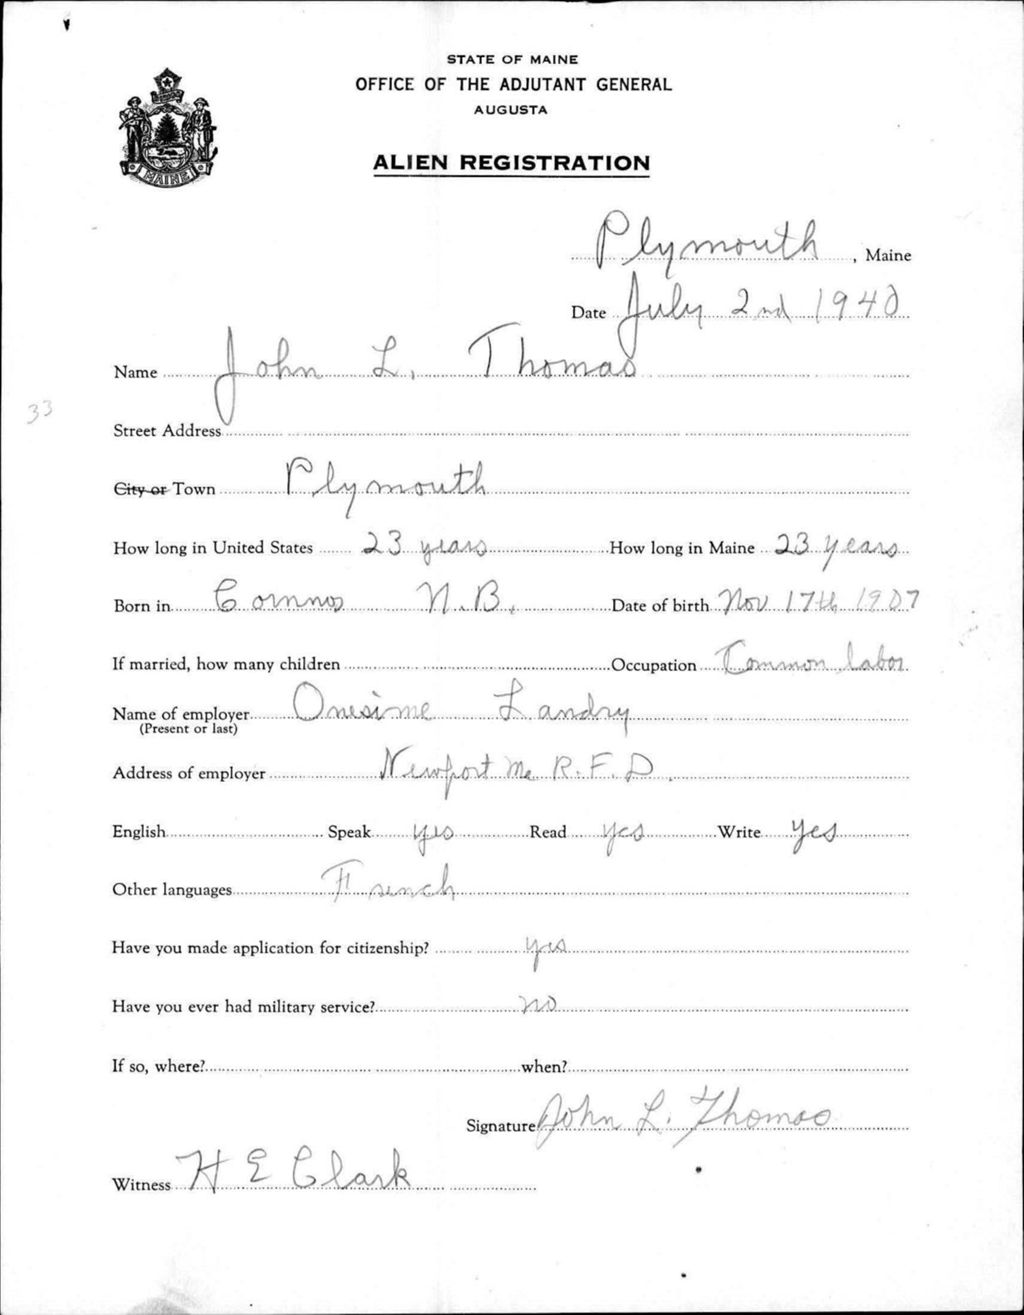 STATE OF MAINE
OFFICE OF THE ADJUTANT GENERAL
AUGUSTA
ALIEN REGISTRATION
MAINE
Plymouth, Maine
Date July 2nd 1940
Name John L. Thomas
33
Street Address
City or Town Plymouth
How long in United States 23 years How long in Maine 23 years
Born in N.B. Date of birth Nov 17th 1907
If married, how many children Occupation Common labor
Name of employer Onesime Landry
(Present or last)
Address of employer Newport Me R.F.D.
English Speak yes Read yes Write yes
Other languages French
Have you made application for citizenship? yes
Have you ever had military service? no
If so, where? when?
Signature John L. Thomas
Witness H E Clark